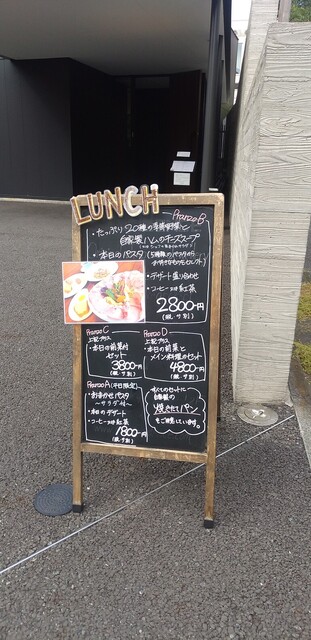 LUNCH
Pranzo B
・たっぷり20種の季節野菜と
自家製ハムのチーズスープ
・本日のパスタ (5種類のパスタから
お好きなものをセレクト)
・デザート盛り合わせ
・コーヒー or 紅茶
2800円
(税・サ別)
Pranzo C
上記プラス
・本日の前菜付
セット
3800円
(税・サ別)
Pranzo D
上記プラス
・本日の前菜と
メイン料理のセット
4800円
(税・サ別)
Pranzo A (平日限定)
・おまかせパスタ
〜サラダ付〜
・本日のデザート
・コーヒー or 紅茶
1800円
(税・サ別)
すべてのセットに
自家製の
焼きたてパン
をご用意しています。